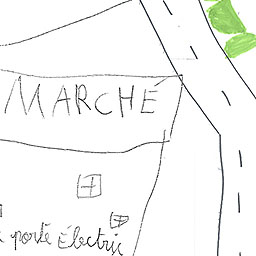 MARCHÉ
porte Électric